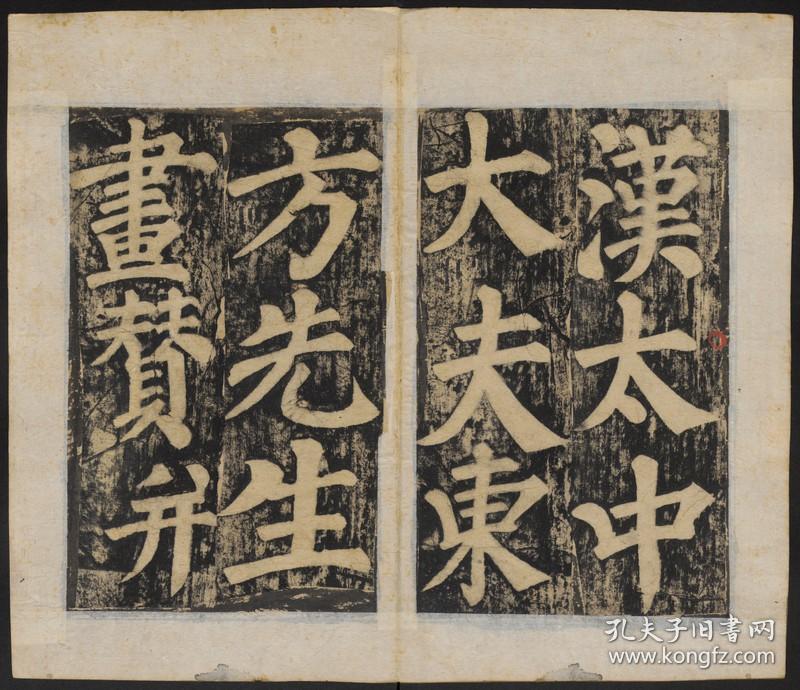 漢太中
大夫東
方先生
畫贊并
孔夫子旧书网
www.kongfz.com